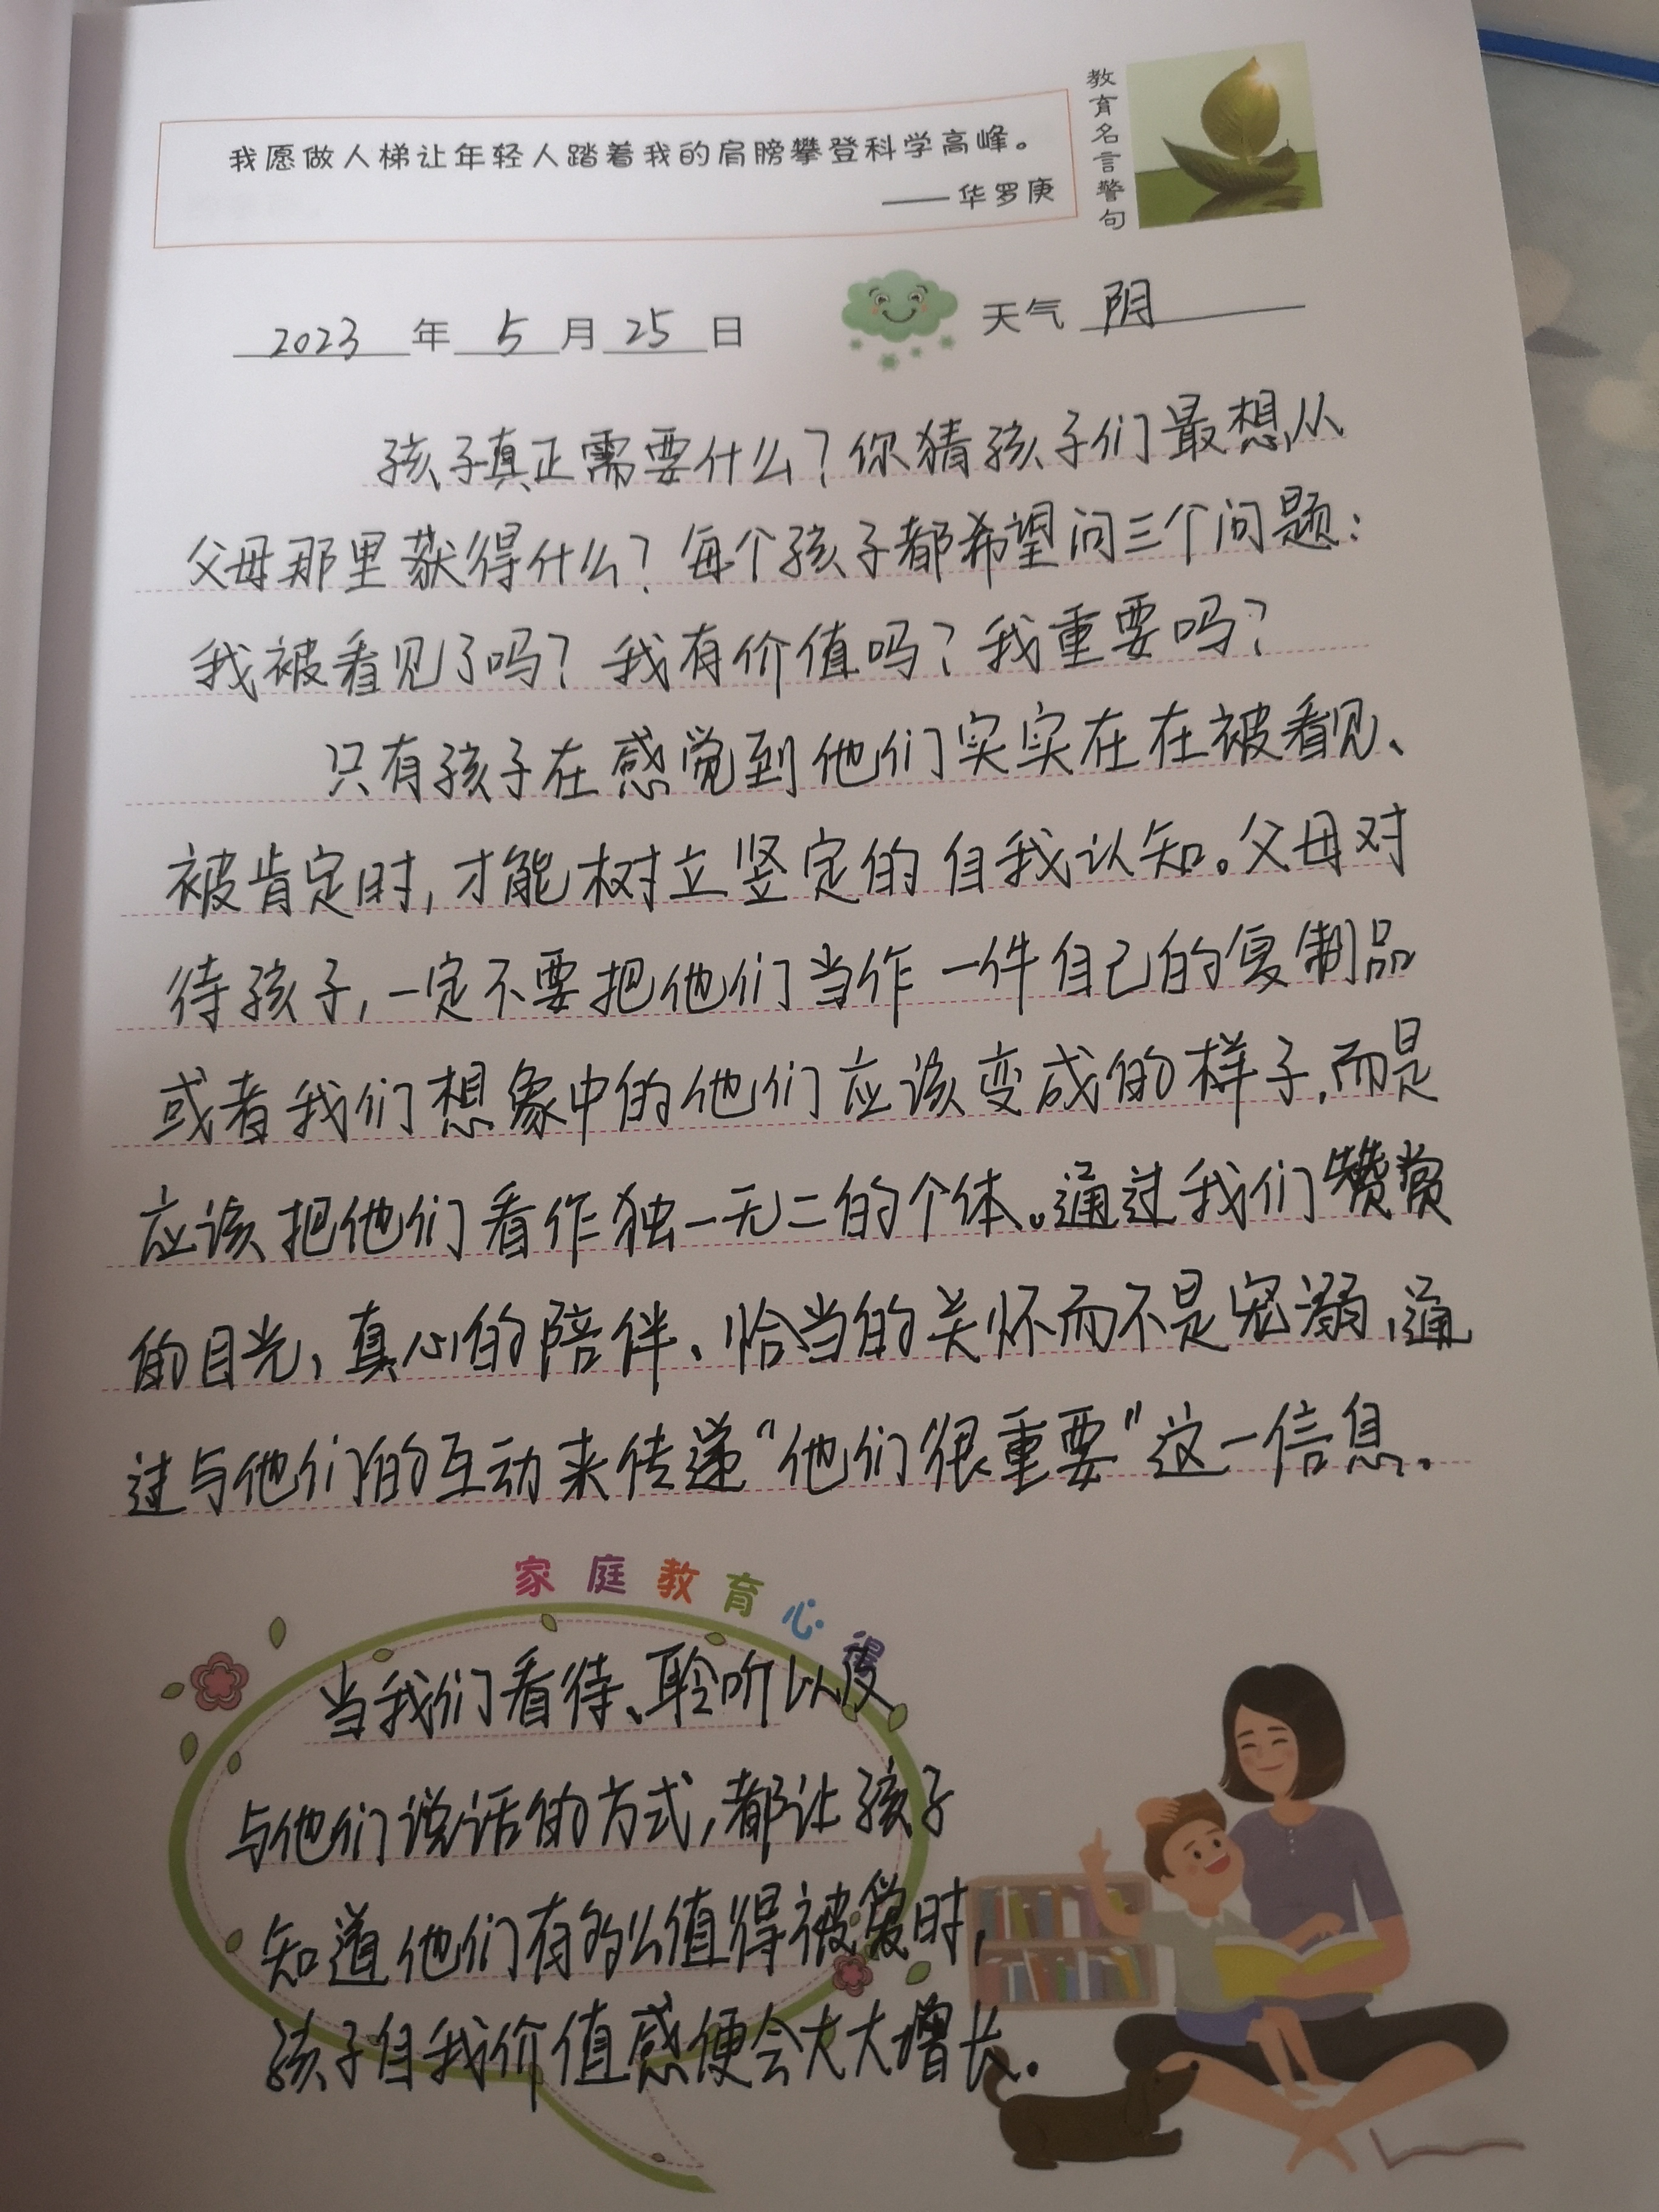 我愿做人梯让年轻人踏着我的肩膀攀登科学高峰。
——华罗庚
教育名言警句
2023年5月25日 天气 阴
孩子真正需要什么?你猜孩子们最想从
父母那里获得什么?每个孩子都希望问三个问题:
我被看见了吗?我有价值吗?我重要吗?
只有孩子在感觉到他们实实在在被看见、
被肯定时,才能树立竖定的自我认知。父母对
待孩子,一定不要把他们当作一件自己的复制品
或者我们想象中的他们应该变成的样子,而是
应该把他们看作独一无二的个体。通过我们赞赏
的目光,真心的陪伴、恰当的关怀而不是宠溺,通
过与他们的互动来传递“他们很重要”这一信息.
家庭教育心得
当我们看待、聆听以及
与他们说话的方式,都让孩子
知道他们有多么值得被爱时,
孩子自我价值感便会大大增长.